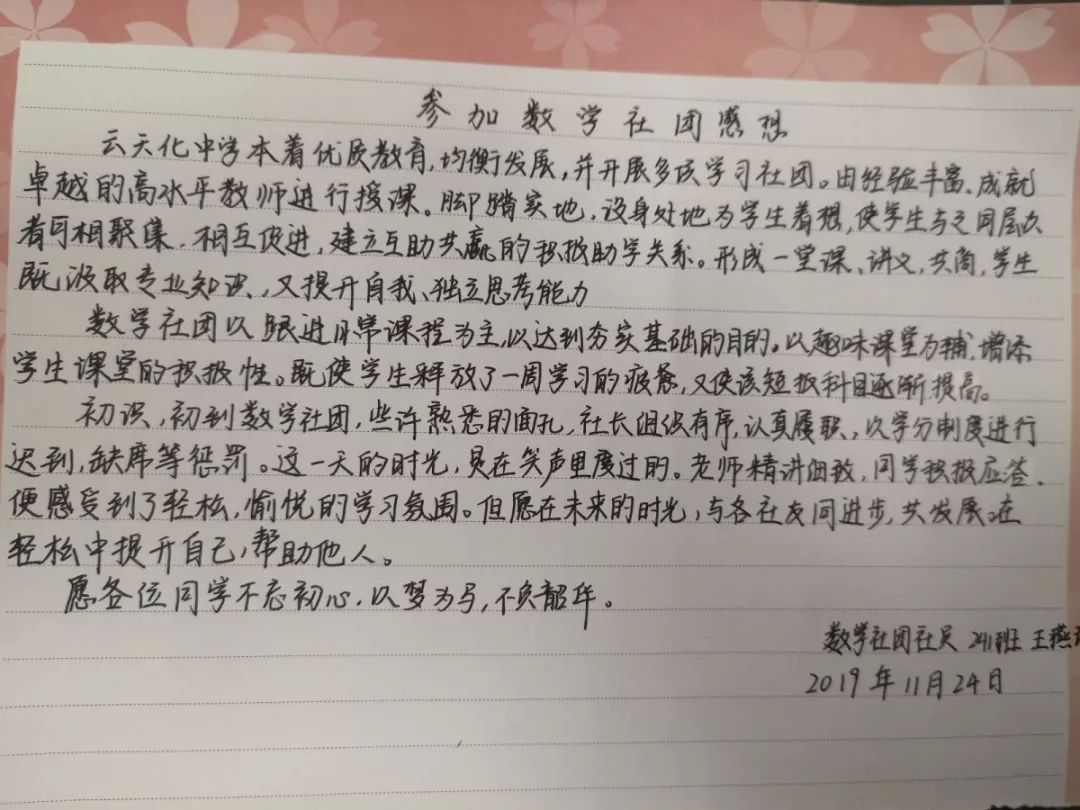 参加数学社团感想
云天化中学本着优质教育,均衡发展,并开展多该学习社团。由经验丰富、成就
卓越的高水平教师进行授课。脚踏实地,设身处地为学生着想,使学生与之同层次
者可相聚集,相互促进,建立互助共赢的积极助学关系。形成一堂课、讲义,共商,学生
既汲取专业知识,又提升自我、独立思考能力
数学社团以跟进日常课程为主,以达到夯实基础的目的。以趣味课堂为辅,增添
学生课堂的积极性。既使学生释放了一周学习的疲惫,又使该短板科目逐渐提高。
初识,初到数学社团,些许熟悉的面孔,社长组织有序,认真履职,以学分制度进行
迟到,缺席等惩罚。这一天的时光,是在笑声里度过的。老师精讲细致,同学积极应答,
便感受到了轻松,愉悦的学习氛围。但愿在未来的时光,与各社友同进步,共发展。在
轻松中提升自己,帮助他人。
愿各位同学不忘初心,以梦为马,不负韶华。
数学社团社员 241班 王燕
2019年11月24日